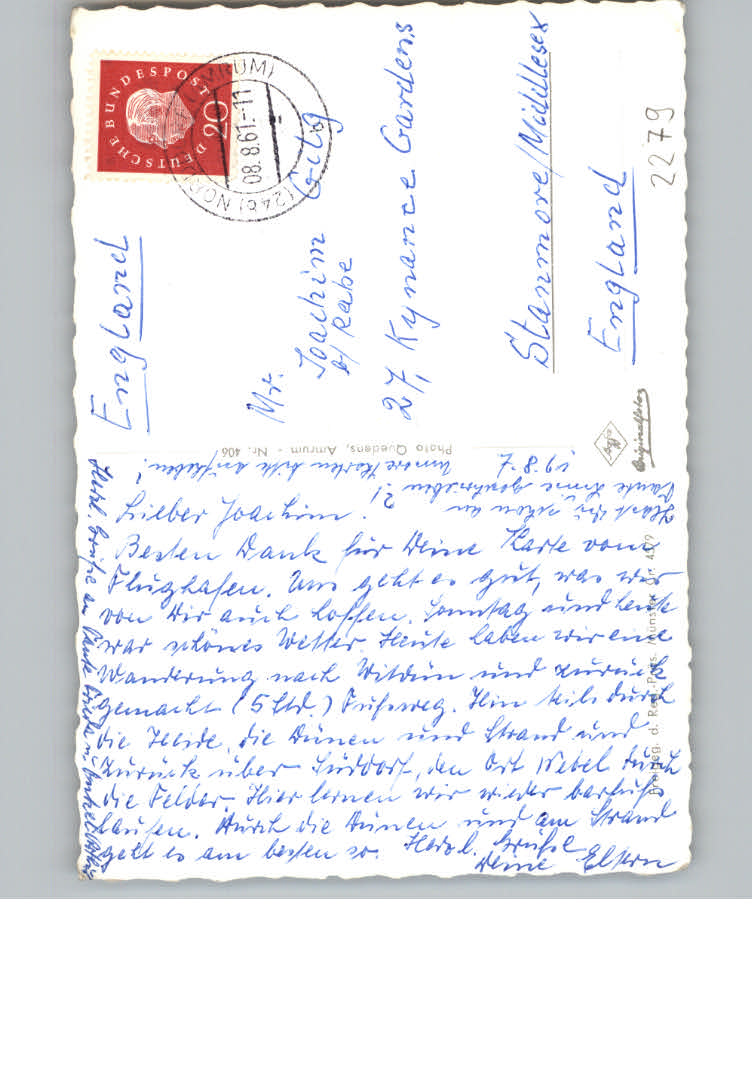 DEUTSCHE BUNDESPOST
20
(24b) NORDDORF (AMRUM)
08.8.61.-11
b
England
Mr.
Joachim
c/o Rabe
27, Kynance Gardens
Stanmore/Middlesex
England
2279
Photo Quedens, Amrum - Nr. 406
Agfa
Originalfoto
7.8.61
Lieber Joachim!
Besten Dank für Deine Karte vom
Flughafen. Uns geht es gut, was wir
von Dir auch hoffen. Sonntag und heute
war schönes Wetter. Heute haben wir eine
Wanderung nach Wittdün und zurück
gemacht (5 Std.) Fußweg. Hin teils durch
die Heide, die Dünen und Strand und
zurück über Süddorf, den Ort Nebel durch
die Felder. Hier lernen wir wieder barfuß
laufen. Durch die Dünen und am Strand
geht es am besten so. Herzl. Grüße
Deine Eltern
Hast Du schon an
Tante geschrieben?!
Unsere Karten bitte aufheben!
Herzl. Grüße an Tante u. Onkel
Freigeg. d. Reg.-Präs. Münster Nr. 4379